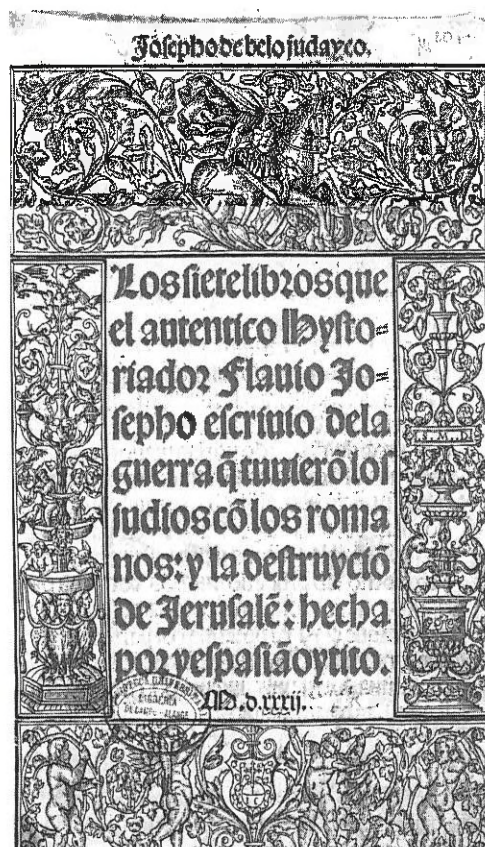 Josepho de belo judayco.
Los siete libros que
el autentico Hysto=
riador Flauio Jo=
sepho escriuio dela
guerra q̃ tuuierõ los
judios cõ los roma
nos: y la destruyciõ
de Jerusalẽ: hecha
por vespasião y tito.
M.d.xxxij.